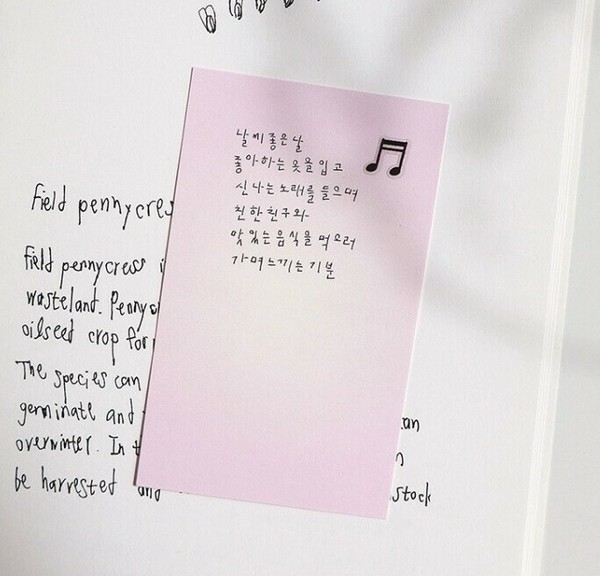 Field pennycres
Field pennycress i
wasteland. Penny
oilseed crop for
The species can
germinate and
overwinter. In t
be harvested and stock
날씨 좋은 날
좋아하는 옷을 입고
신나는 노래를 들으며
친한 친구와
맛있는 음식을 먹으러
가며 느끼는 기분